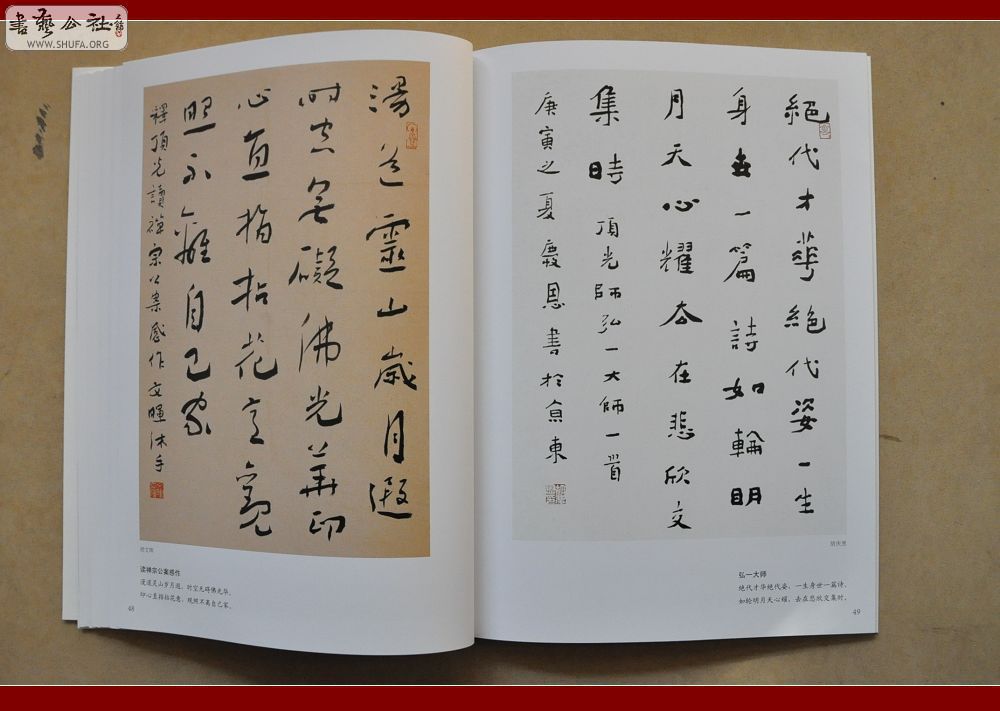 書藝公社
WWW.SHUFA.ORG
漫道靈山歲月遐
时空无礙佛光華印
心直指拈花意觀
照不離自己家
釋頂光讀禪宗公案感作 文暉沐手
读禅宗公案感作
漫道灵山岁月遐，时空无碍佛光华。
印心直指拈花意，观照不离自己家。
48
絕代才華絕代姿一生
身世一篇詩如輪明
月天心耀去在悲欣交
集時 頂光師弘一大師一首
庚寅之夏慶恩書於京東
弘一大师
绝代才华绝代姿，一生身世一篇诗。
如轮明月天心耀，去在悲欣交集时。
49